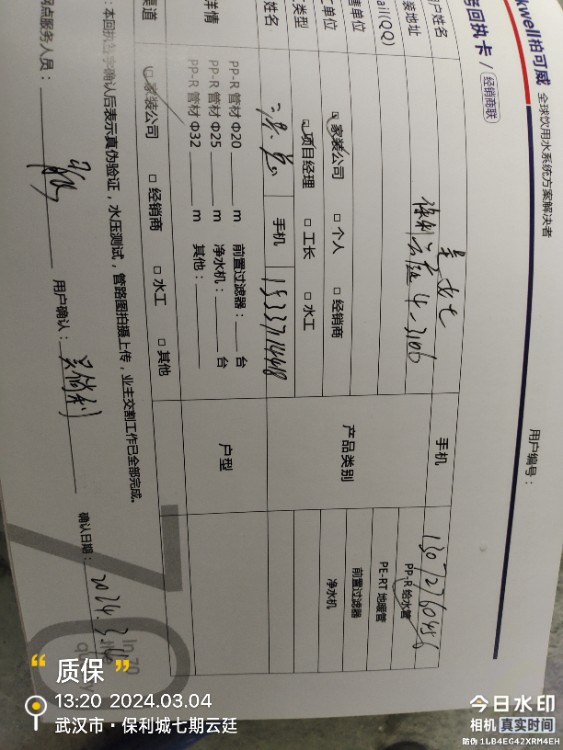 kwell柏可威 全球饮用水系统方案解决者
回执卡 / 经销商联
用户编号：
户姓名 手机
装地址 4-3106
ail(QQ) 产品类别 PP-R 给水管
PE-RT 地暖管
前置过滤器
净水机
售单位 家装公司 □ 个人 □ 经销商
类型 项目经理 □ 工长 □ 水工
姓名 手机
详情 PP-R 管材 Φ20 m 前置过滤器： 台
PP-R 管材 Φ25 m 净水机： 台
PP-R 管材 Φ32 m 其他：
户型
渠道 家装公司 □ 经销商 □ 水工 □ 其他
确认后表示真伪验证，水压测试，管路图拍摄上传，业主交割工作已全部完成。
网点服务人员： 用户确认： 确认日期：2024.3
“ 质保 ”
13:20 2024.03.04
武汉市·保利城七期云廷
今日水印
相机 真实时间
防伪 1LB4EG42XRM4EH